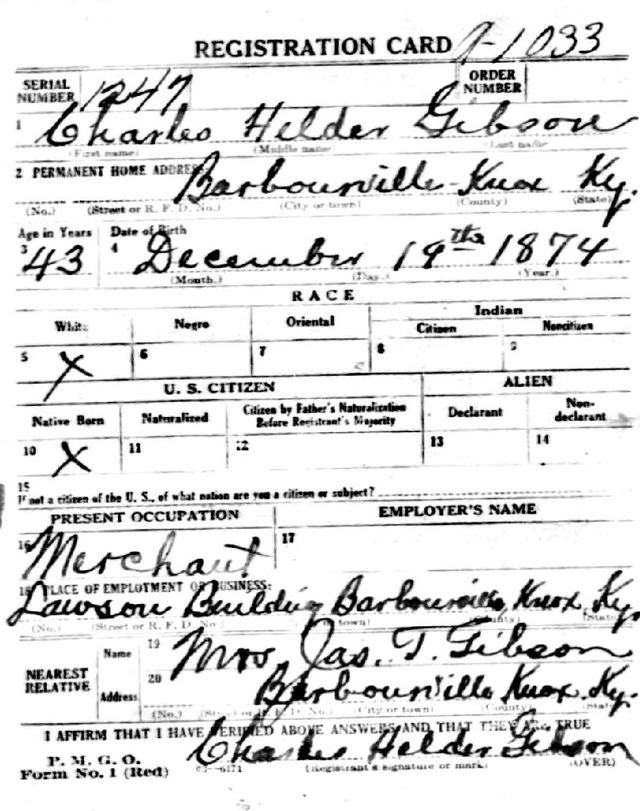 REGISTRATION CARD
SERIAL NUMBER 1247 ORDER NUMBER
1 Charles Helder Gibson
(First name) (Middle name) (Last name)
2 PERMANENT HOME ADDRESS Barbourville Knox Ky.
(No.) (Street or R. F. D. No.) (City or town) (County) (State)
Age in Years Date of Birth
3 43 4 December 19th 1874
(Month.) (Day.) (Year.)
RACE
White Negro Oriental Indian
Citizen Noncitizen
5 X 6 7 8 9
U. S. CITIZEN ALIEN
Native Born Naturalized Citizen by Father's Naturalization Before Registrant's Majority Declarant Non-declarant
10 X 11 12 13 14
15
If not a citizen of the U. S., of what nation are you a citizen or subject?
PRESENT OCCUPATION EMPLOYER'S NAME
16 Merchant 17
18 PLACE OF EMPLOYMENT OR BUSINESS:
Lawson Building Barbourville, Knox, Ky.
(No.) (Street or R. F. D. town) (County) (State)
NEAREST RELATIVE Name 19 Mrs. Jas. T. Gibson
Address 20 Barbourville Knox, Ky.
(No.) (Street or R. F. D. No.) (City or town) (County) (State)
I AFFIRM THAT I HAVE VERIFIED ABOVE ANSWERS AND THAT THEY ARE TRUE
P. M. G. O.
Form No. 1 (Red) Charles Helder Gibson
(Registrant's signature or mark) (OVER)